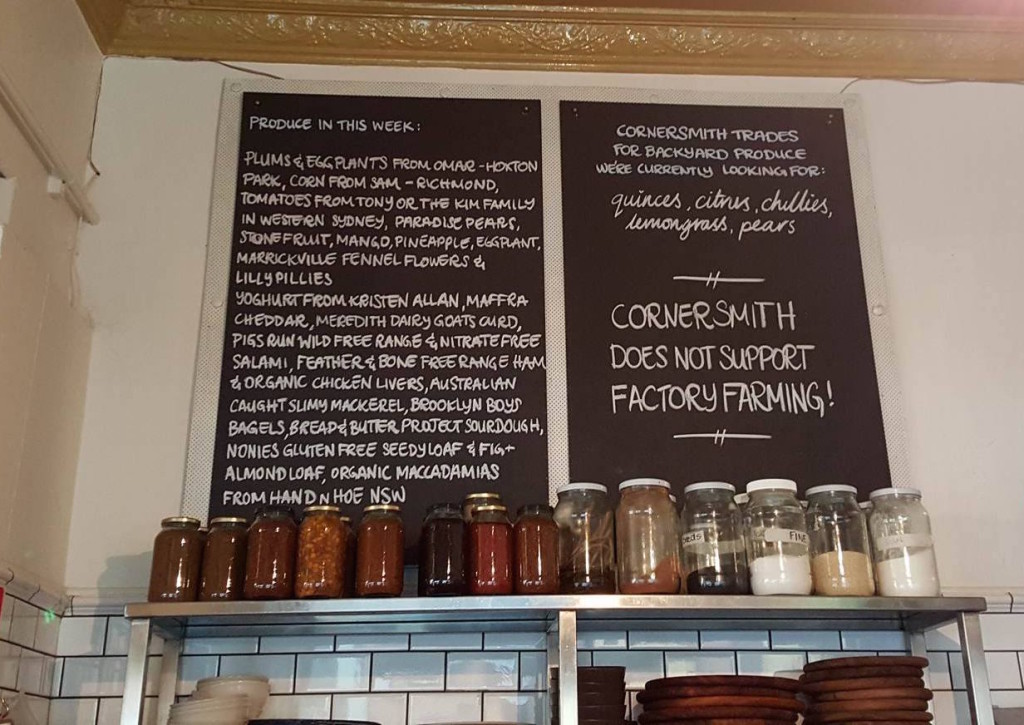 PRODUCE IN THIS WEEK:
PLUMS & EGGPLANTS FROM OMAR - HOXTON
PARK, CORN FROM SAM - RICHMOND,
TOMATOES FROM TONY OR THE KIM FAMILY
IN WESTERN SYDNEY, PARADISE PEARS,
STONEFRUIT, MANGO, PINEAPPLE, EGGPLANT,
MARRICKVILLE FENNEL FLOWERS &
LILLYPILLIES
YOGHURT FROM KRISTEN ALLAN, MAFFRA
CHEDDAR, MEREDITH DAIRY GOATS CURD,
PIGS RUN WILD FREE RANGE & NITRATE FREE
SALAMI, FEATHER & BONE FREE RANGE HAM
& ORGANIC CHICKEN LIVERS, AUSTRALIAN
CAUGHT SLIMY MACKEREL, BROOKLYN BOYS
BAGELS, BREAD & BUTTER PROJECT SOURDOUGH,
NONIES GLUTEN FREE SEEDY LOAF & FIG +
ALMOND LOAF, ORGANIC MACCADAMIAS
FROM HAND N HOE NSW
CORNERSMITH TRADES
FOR BACKYARD PRODUCE
WE'RE CURRENTLY LOOKING FOR:
quinces, citrus, chillies,
lemongrass, pears
CORNERSMITH
DOES NOT SUPPORT
FACTORY FARMING!
FINE